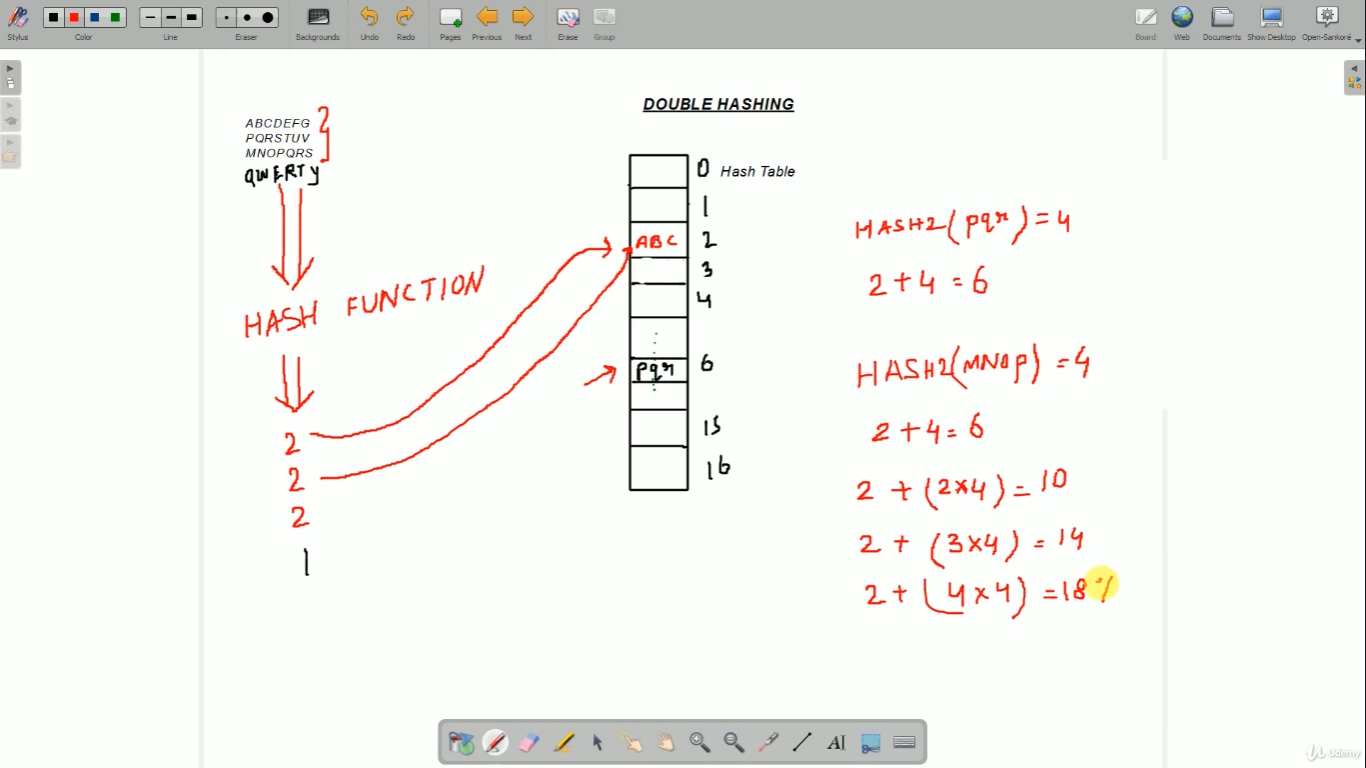 Stylus
Color
Line
Eraser
Backgrounds
Undo
Redo
Pages
Previous
Next
Erase
Group
Board
Web
Documents
Show Desktop
Open-Sankoré
DOUBLE HASHING
ABCDEFG
PQRSTUV
MNOPQRS
QWERTY
HASH FUNCTION
2
2
2
1
0 Hash Table
1
ABC 2
3
4
pqr 6
15
16
HASH2(pqr) = 4
2 + 4 = 6
HASH2(MNOP) = 4
2 + 4 = 6
2 + (2×4) = 10
2 + (3×4) = 14
2 + (4×4) = 18
AI
Udemy